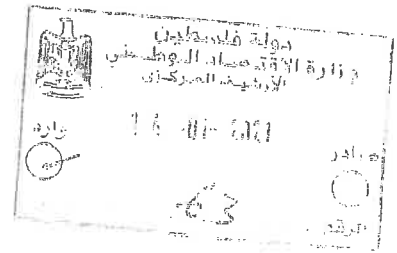 دولة فلسطين
وزارة الاقتصاد الوطني
الأرشيف المركزي
وارد
صادر
الرقم